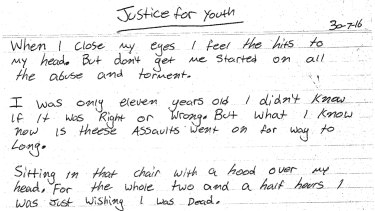 Justice for Youth
30-7-16
When I close my eyes I feel the hits to
my head. But don't get me started on all
the abuse and torment.
I was only eleven years old I didn't know
if it was Right or Wrong. But what I know
now is theese Assaults went on for way to
Long.
Sitting in that chair with a hood over my
head. For the whole two and a half hours I
was just wishing I was Dead.